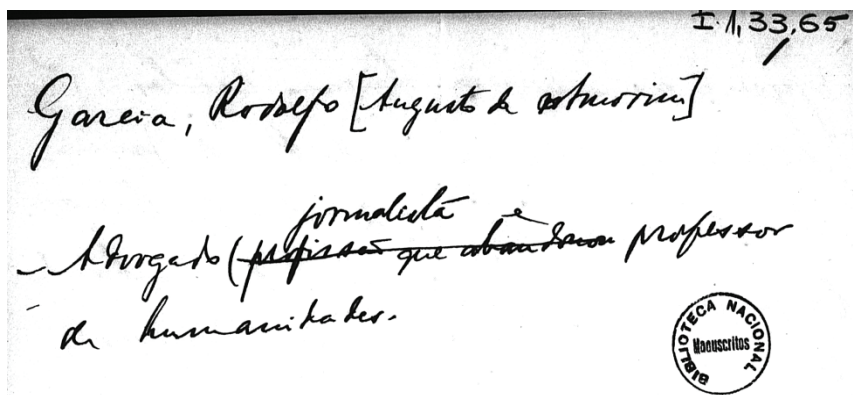 I-1,33,65
Garcia, Rodolfo [Augusto de Amorim]
jornalista e
- Advogado (profissão que abandonou professor
de humanidades.
BIBLIOTECA NACIONAL
Manuscritos